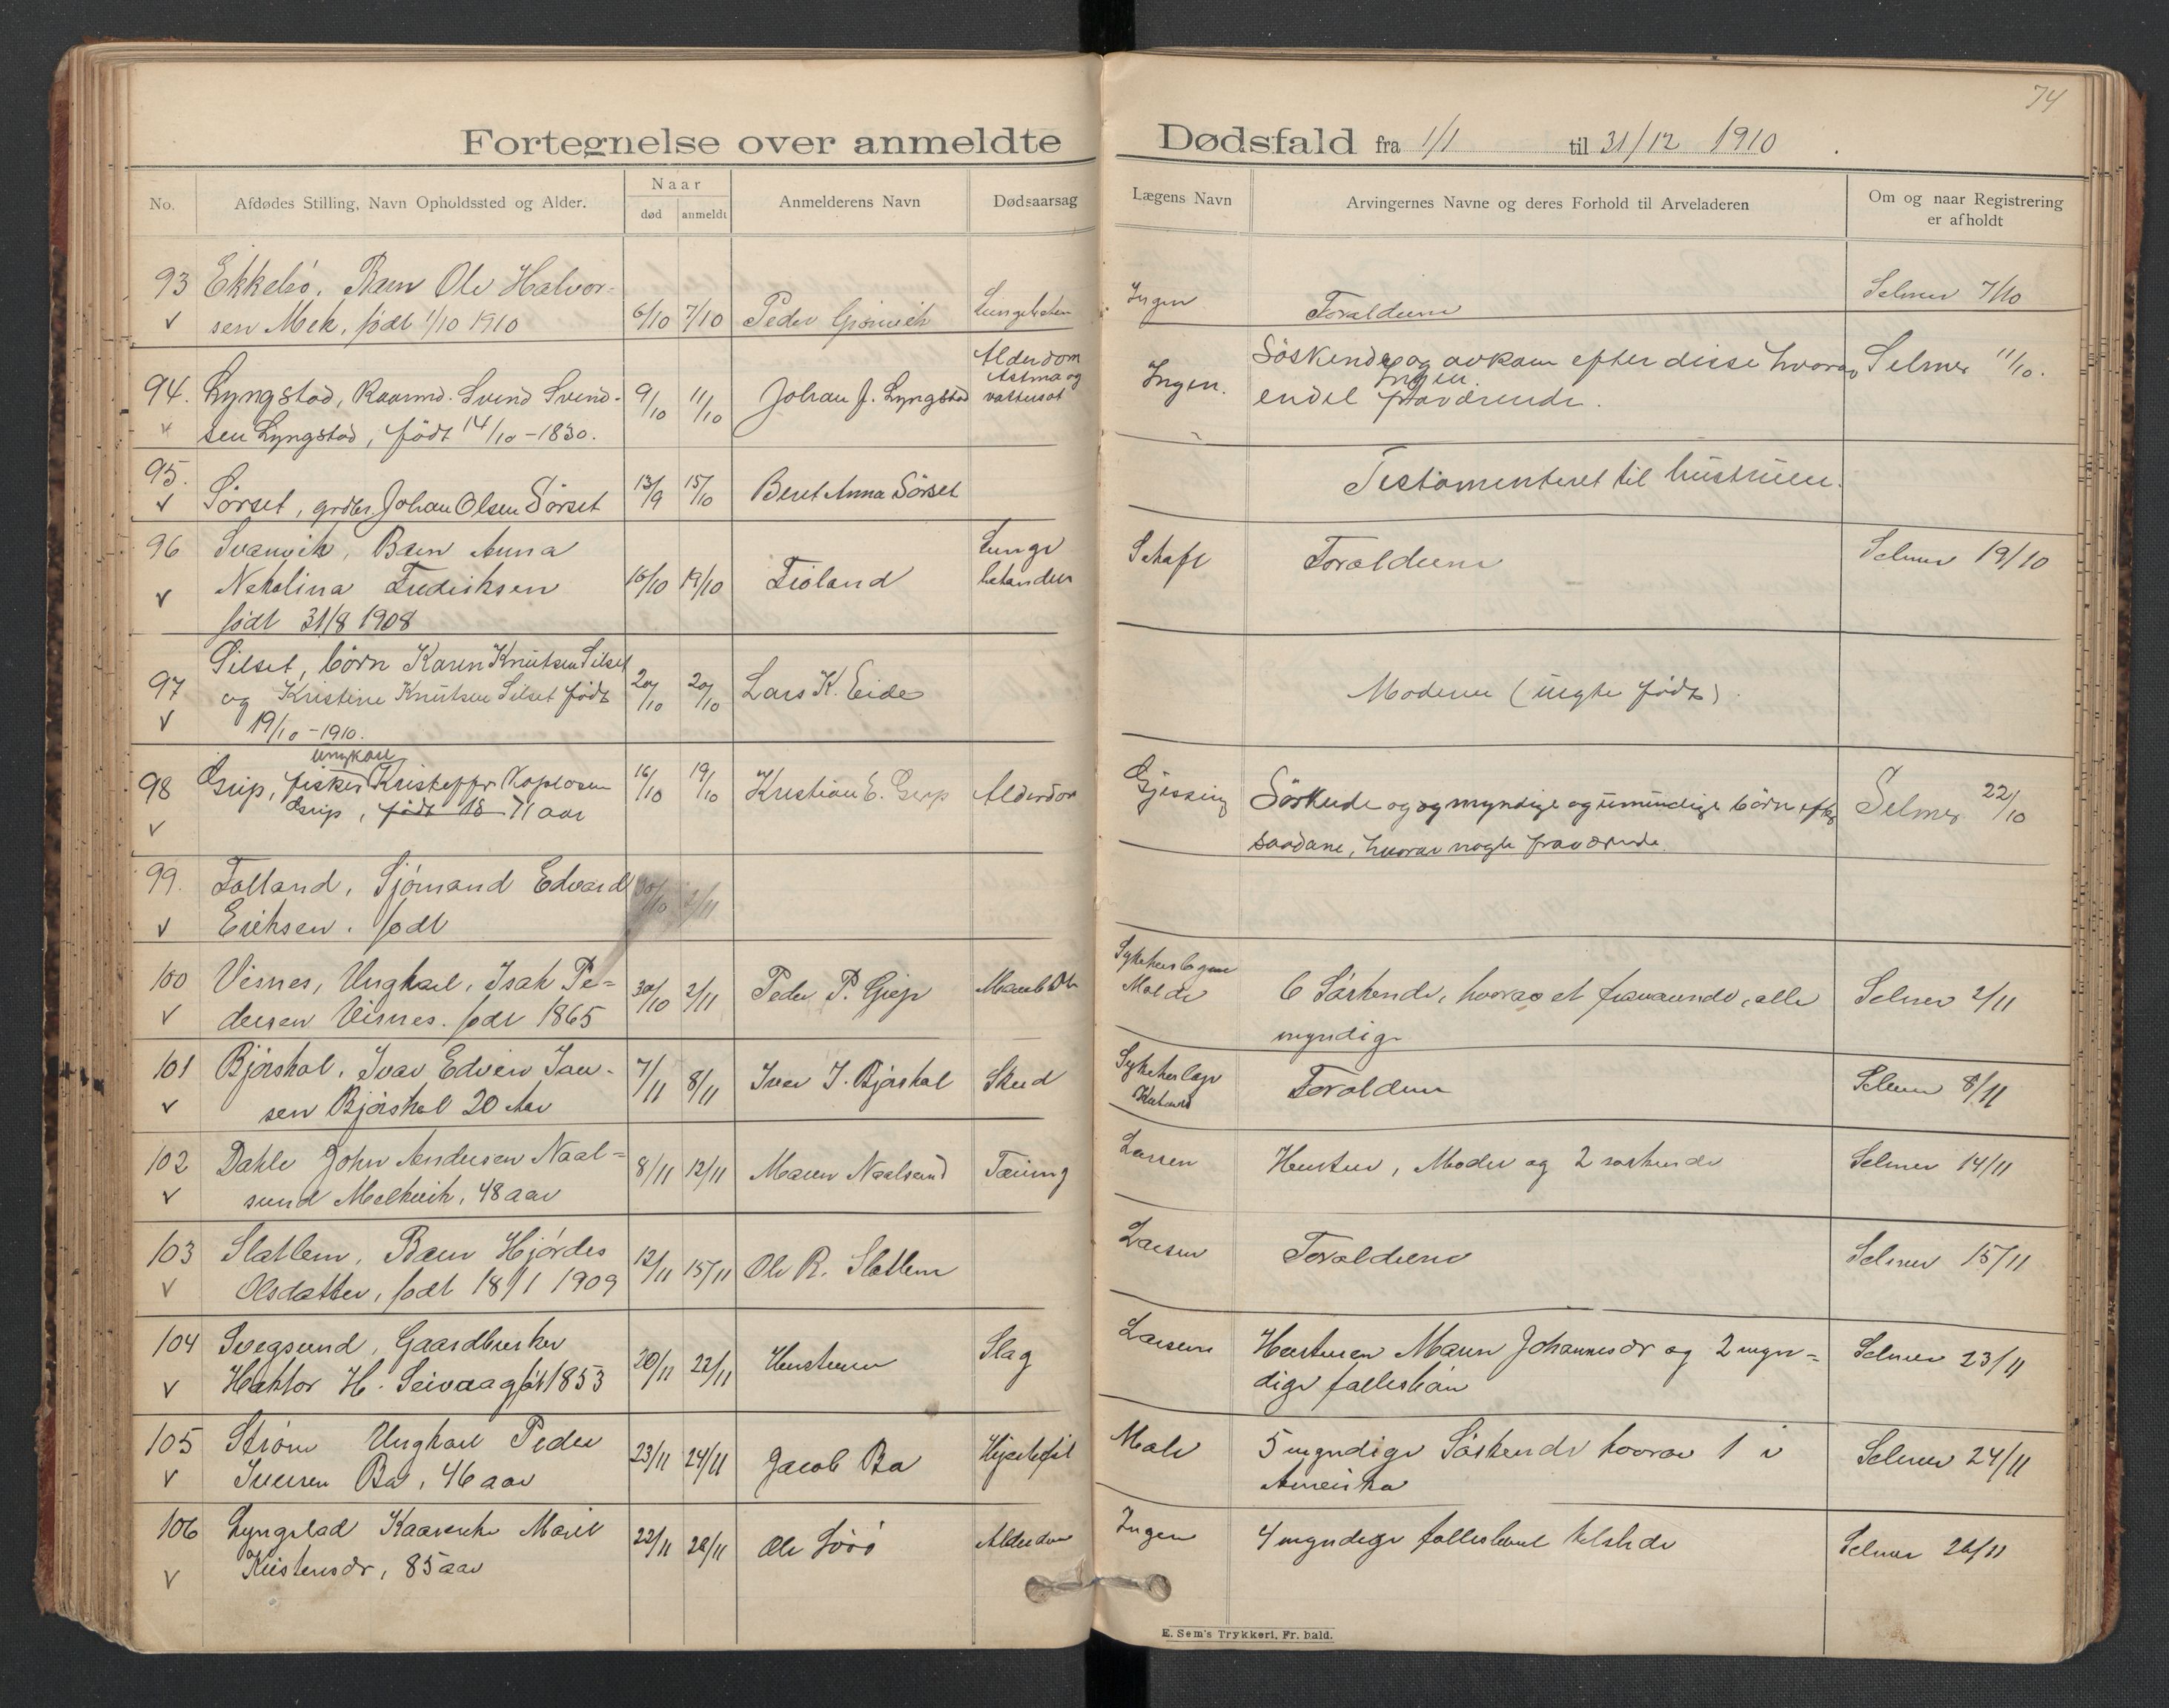 74
Fortegnelse over anmeldte Dødsfald fra 1/1 til 31/12 1910
No.
Afdødes Stilling, Navn Opholdssted og Alder.
Naar
død
anmeldt
Anmelderens Navn
Dødsaarsag
Lægens Navn
Arvingernes Navne og deres Forhold til Arveladeren
Om og naar Registrering
er afholdt
93 Ekkelsö, Barn Ole Halvor-
sen Mek, födt 1/10 1910
6/10 7/10 Peder
Ingen
Forældrene
Selmer 7/10
94. Lyngstad, Kaarmd. Svend Svend-
sen Lyngstad, födt 14/10 - 1830.
9/10 11/10 Johan J. Lyngstad
Alderdom
Astma og
vattersot
Ingen.
Söskende og avkom efter disse hvorav
Ingen
endel fraværende.
Selmer 11/10.
95.
Sörset, grdbr. Johan Olsen Sörset
13/9 15/10 Beret Anna Sörset
Testamenteret til hustruen.
96 Svanvik, Barn Anna
Nekolina Fredriksen
födt 31/8 1908
19/10
Lunge
betændelse
Forældrene
Selmer 19/10
Silset, börn Karen Knutsen Silset
97 og Kristine Knutsen Silset födt
19/10 - 1910.
20/10 20/10 Lars K. Eide
Moderen (uegte födt).
ungkarl
98 Grip, fisker Kristoffer
Grip, födt 18 71 aar
16/10 19/10 Kristian E. Grip
Alderdom
Gjessing
Söskende og og myndige og umyndige börn efter
saadane, hvorav nogle fraværende.
Selmer 22/10
99. Folland, Sjömand Edvard
Eriksen. födt
30/10 2/11
100 Visnes, Ungkarl, Isak Pe=
dersen Visnes. födt 1865
30/10 2/11 Peder P.
Sykehuslægen
Molde
6 Söskende, hvorav et fraværende, alle
myndige
Selmer 2/11
101 Björkol, Ivar Edvin Iver-
sen 20 Aar
7/11 8/11
Skud
Forældrene
Selmer 8/11
102 Dahle John Andersen Naal=
sund Melkvik, 48 aar
8/11 12/11 Maren Naalsund
Tæring
Larsen
Hustru, Moder og 2 söskende
Selmer 14/11
103 Slatlem, Barn Hjördis
Olsdatter, födt 18/1 1909
12/11 15/11 Ole R. Slatlem
Larsen
Forældrene
Selmer 15/11
104 Sveggsund, Gaardbruker
H. Seivaag föt 1853
20/11 22/11 Hustruen
Slag
Larsen
Hustruen Maren Johannesdr og 2 myn=
dige fællesbörn
Selmer 23/11
105 Ström Ungkarl Peder
Iversen Bø, 46 aar
23/11 24/11 Jacob Bø
Hjertefeil
5 myndige Söskende hvorav 1 i
Amerika
Selmer 24/11
106 Lyngstad Kaarenke Marit
Kristensdr, 85 aar
22/11 Ole
Alderdom
Ingen
4 myndige fællesbarn tilstede
Selmer 26/11
E. Sem's Trykkeri, Fr. hald.